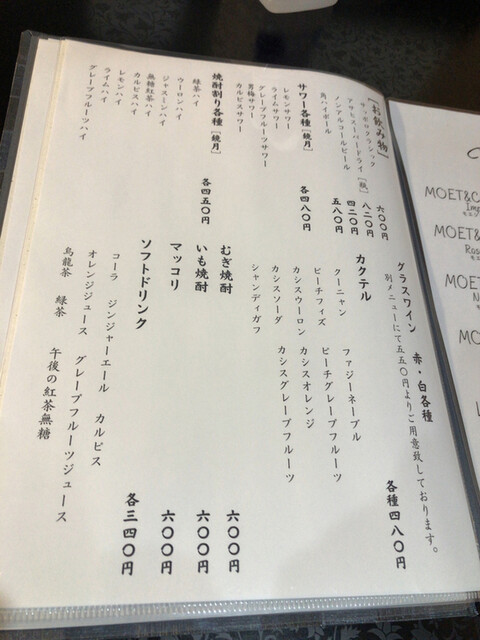 【お飲み物】
サッポロクラシック 六〇〇円
アサヒスーパードライ［瓶］ 八二〇円
ノンアルコールビール 四二〇円
角ハイボール 五八〇円
サワー各種［鏡月］ 各四八〇円
レモンサワー
ライムサワー
グレープフルーツサワー
男梅サワー
カルピスサワー
焼酎割り各種［鏡月］ 各四五〇円
緑茶ハイ
ウーロンハイ
ジャスミンハイ
無糖紅茶ハイ
カルピスハイ
レモンハイ
ライムハイ
グレープフルーツハイ
グラスワイン 赤・白各種
別メニューにて五五〇円よりご用意致しております。
カクテル 各種四八〇円
クーニャン ファジーネーブル
ピーチフィズ ピーチグレープフルーツ
カシスウーロン カシスオレンジ
カシスソーダ カシスグレープフルーツ
シャンディガフ
むぎ焼酎 六〇〇円
いも焼酎 六〇〇円
マッコリ 六〇〇円
ソフトドリンク 各三四〇円
コーラ ジンジャーエール カルピス
オレンジジュース グレープフルーツジュース
烏龍茶 緑茶 午後の紅茶無糖
MOET&C
MOET&
MOET
MO